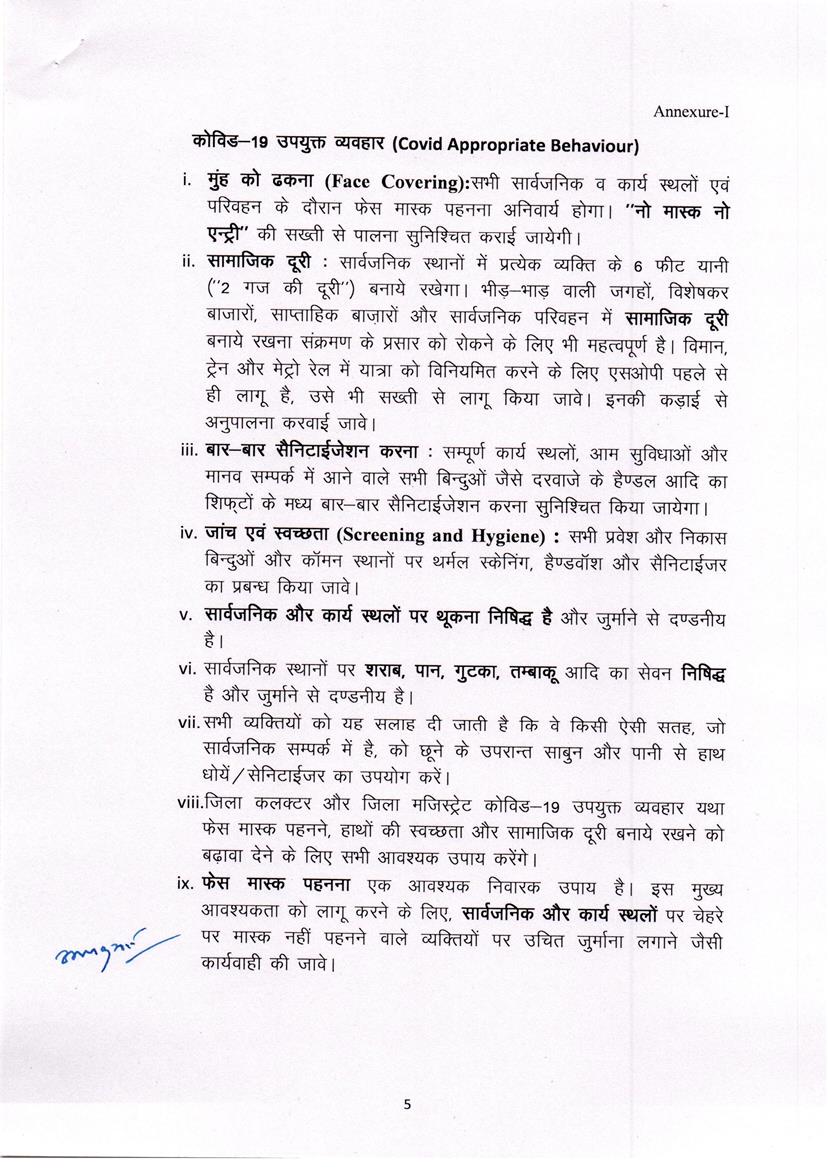 Annexure-I
कोविड–19 उपयुक्त व्यवहार (Covid Appropriate Behaviour)
i. मुंह को ढकना (Face Covering):सभी सार्वजनिक व कार्य स्थलों एवं
परिवहन के दौरान फेस मास्क पहनना अनिवार्य होगा। "नो मास्क नो
एन्ट्री" की सख्ती से पालना सुनिश्चित कराई जायेगी।
ii. सामाजिक दूरी : सार्वजनिक स्थानों में प्रत्येक व्यक्ति के 6 फीट यानी
("2 गज की दूरी") बनाये रखेगा। भीड़–भाड़ वाली जगहों, विशेषकर
बाजारों, साप्ताहिक बाज़ारों और सार्वजनिक परिवहन में सामाजिक दूरी
बनाये रखना संक्रमण के प्रसार को रोकने के लिए भी महत्वपूर्ण है। विमान,
ट्रेन और मेट्रो रेल में यात्रा को विनियमित करने के लिए एसओपी पहले से
ही लागू है, उसे भी सख्ती से लागू किया जावे। इनकी कड़ाई से
अनुपालना करवाई जावे।
iii. बार–बार सैनिटाईजेशन करना : सम्पूर्ण कार्य स्थलों, आम सुविधाओं और
मानव सम्पर्क में आने वाले सभी बिन्दुओं जैसे दरवाजे के हैण्डल आदि का
शिफ्टों के मध्य बार–बार सैनिटाईजेशन करना सुनिश्चित किया जायेगा।
iv. जांच एवं स्वच्छता (Screening and Hygiene) : सभी प्रवेश और निकास
बिन्दुओं और कॉमन स्थानों पर थर्मल स्केनिंग, हैण्डवॉश और सैनिटाईजर
का प्रबन्ध किया जावे।
v. सार्वजनिक और कार्य स्थलों पर थूकना निषिद्ध है और जुर्माने से दण्डनीय
है।
vi. सार्वजनिक स्थानों पर शराब, पान, गुटका, तम्बाकू आदि का सेवन निषिद्ध
है और जुर्माने से दण्डनीय है।
vii. सभी व्यक्तियों को यह सलाह दी जाती है कि वे किसी ऐसी सतह, जो
सार्वजनिक सम्पर्क में है, को छूने के उपरान्त साबुन और पानी से हाथ
धोयें/सेनिटाईजर का उपयोग करें।
viii.जिला कलक्टर और जिला मजिस्ट्रेट कोविड–19 उपयुक्त व्यवहार यथा
फेस मास्क पहनने, हाथों की स्वच्छता और सामाजिक दूरी बनाये रखने को
बढ़ावा देने के लिए सभी आवश्यक उपाय करेंगे।
ix. फेस मास्क पहनना एक आवश्यक निवारक उपाय है। इस मुख्य
आवश्यकता को लागू करने के लिए, सार्वजनिक और कार्य स्थलों पर चेहरे
पर मास्क नहीं पहनने वाले व्यक्तियों पर उचित जुर्माना लगाने जैसी
कार्यवाही की जावे।
5